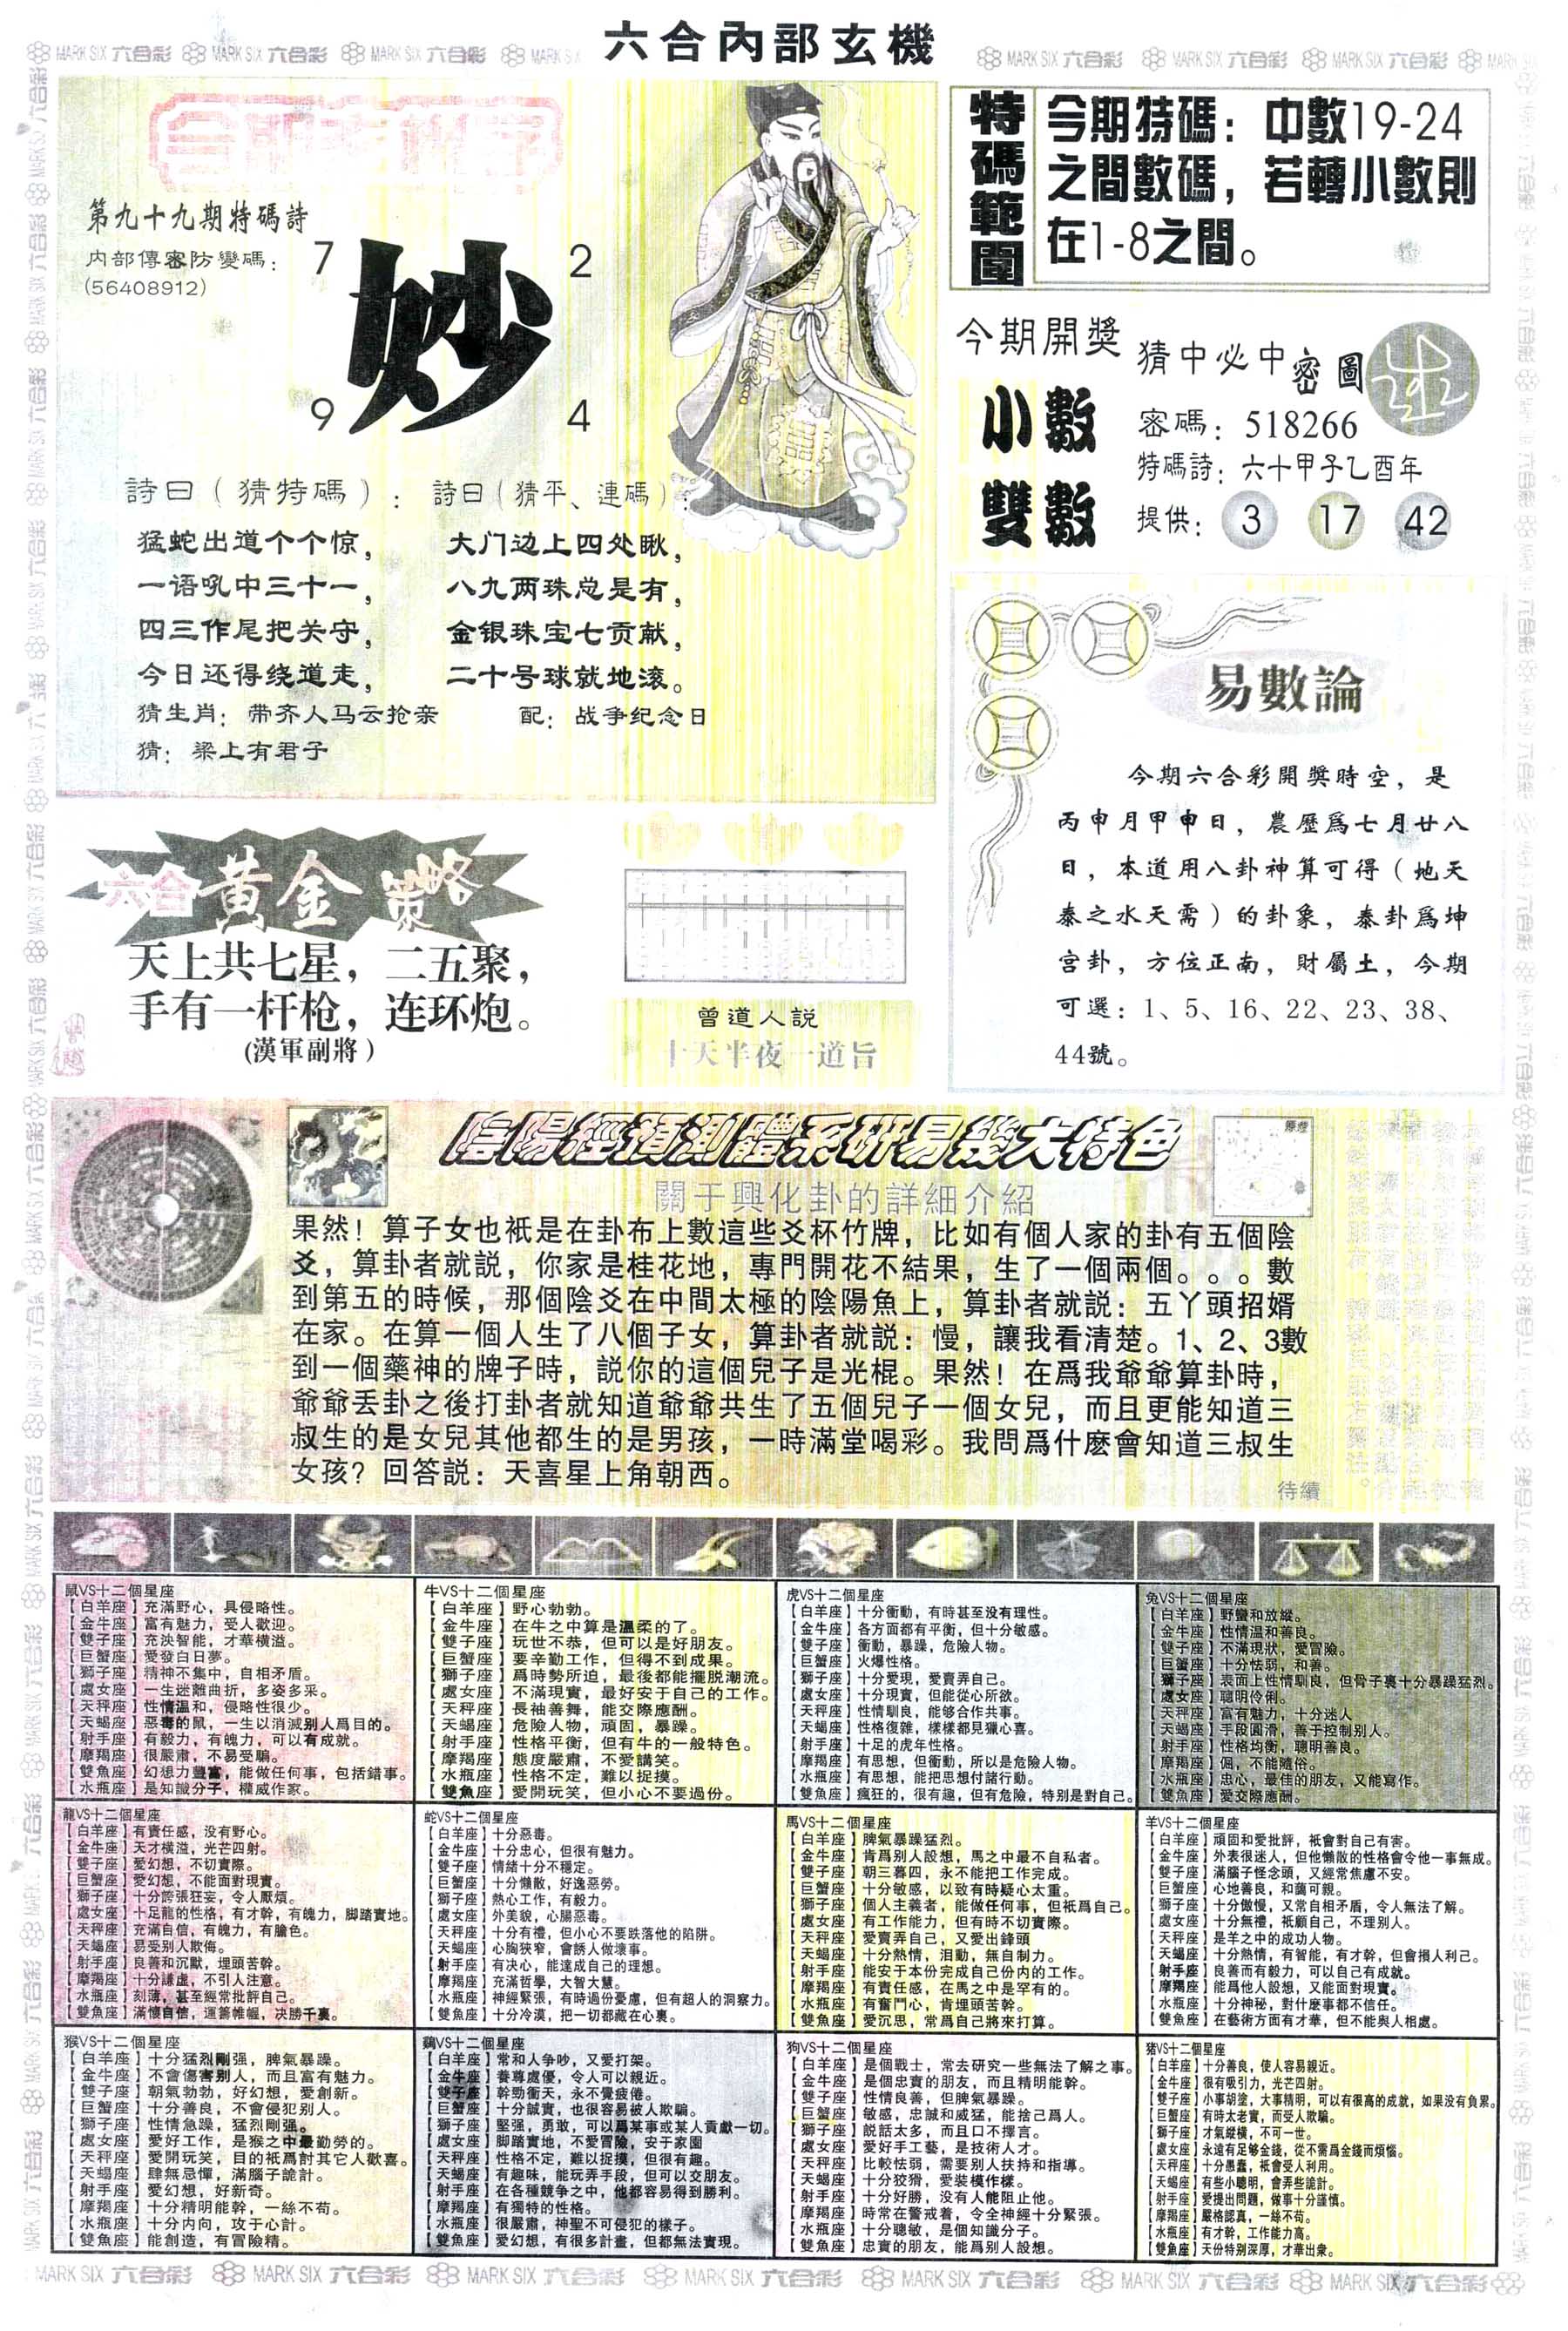 六合內部玄機
MARK SIX 六合彩
第九十九期特碼詩
内部傳密防變碼：
(56408912)
7
2
妙
9
4
詩曰（猜特碼）：
猛蛇出道个个惊，
一语吼中三十一，
四三作尾把关守，
今日还得绕道走，
詩曰（猜平、連碼）：
大门边上四处瞅，
八九两珠总是有，
金银珠宝七贡献，
二十号球就地滚。
猜生肖：带齐人马云抢亲
配：战争纪念日
猜：梁上有君子
特碼範圍
今期特碼：中數19-24
之間數碼，若轉小數則
在1-8之間。
今期開獎
小數
雙數
猜中必中密圖
密碼：518266
特碼詩：六十甲子乙酉年
提供：3 17 42
易數論
今期六合彩開獎時空，是
丙申月甲申日，農歷爲七月廿八
日，本道用八卦神算可得（地天
泰之水天需）的卦象，泰卦爲坤
宫卦，方位正南，財屬土，今期
可選：1、5、16、22、23、38、
44號。
六合黃金策略
天上共七星，二五聚，
手有一杆枪，连环炮。
(漢軍副將)
曾道人説
十天半夜一道旨
陰陽經預測體系研易幾大特色
關于興化卦的詳細介紹
果然！算子女也衹是在卦布上數這些爻杯竹牌，比如有個人家的卦有五個陰
爻，算卦者就説，你家是桂花地，專門開花不結果，生了一個兩個。。。數
到第五的時候，那個陰爻在中間太極的陰陽魚上，算卦者就説：五丫頭招婿
在家。在算一個人生了八個子女，算卦者就説：慢，讓我看清楚。1、2、3數
到一個藥神的牌子時，説你的這個兒子是光棍。果然！在爲我爺爺算卦時，
爺爺丢卦之後打卦者就知道爺爺共生了五個兒子一個女兒，而且更能知道三
叔生的是女兒其他都生的是男孩，一時滿堂喝彩。我問爲什麽會知道三叔生
女孩？回答説：天喜星上角朝西。
待續
鼠VS十二個星座
【白羊座】充滿野心，具侵略性。
【金牛座】富有魅力，受人歡迎。
【雙子座】充泱智能，才華橫溢。
【巨蟹座】愛發白日夢。
【獅子座】精神不集中，自相矛盾。
【處女座】一生迷離曲折，多姿多采。
【天秤座】性情温和，侵略性很少。
【天蝎座】惡毒的鼠，一生以消滅别人爲目的。
【射手座】有毅力，有魄力，可以有成就。
【摩羯座】很嚴肅，不易受騙。
【雙魚座】幻想力豐富，能做任何事，包括錯事。
【水瓶座】是知識分子，權威作家。
牛VS十二個星座
【白羊座】野心勃勃。
【金牛座】在牛之中算是溫柔的了。
【雙子座】玩世不恭，但可以是好朋友。
【巨蟹座】要辛勤工作，但得不到成果。
【獅子座】爲時勢所迫，最後都能擺脱潮流。
【處女座】不滿現實，最好安于自己的工作。
【天秤座】長袖善舞，能交際應酬。
【天蝎座】危險人物，頑固，暴躁。
【射手座】性格平衡，但有牛的一般特色。
【摩羯座】態度嚴肅，不愛講笑。
【水瓶座】性格不定，難以捉摸。
【雙魚座】愛開玩笑，但小心不要過份。
虎VS十二個星座
【白羊座】十分衝動，有時甚至没有理性。
【金牛座】各方面都有平衡，但十分敏感。
【雙子座】衝動，暴躁，危險人物。
【巨蟹座】火爆性格。
【獅子座】十分愛現，愛賣弄自己。
【處女座】十分現實，但能從心所欲。
【天秤座】性情馴良，能够合作共事。
【天蝎座】性格復雜，樣樣都見獵心喜。
【射手座】十足的虎年性格。
【摩羯座】有思想，但衝動，所以是危險人物。
【水瓶座】有思想，能把思想付諸行動。
【雙魚座】瘋狂的，很有趣，但有危險，特别是對自己。
兔VS十二個星座
【白羊座】野蠻和放縱。
【金牛座】性情溫和善良。
【雙子座】不滿現狀，愛冒險。
【巨蟹座】十分怯弱，和善。
【獅子座】表面上性情馴良，但骨子裏十分暴躁猛烈。
【處女座】聰明伶俐。
【天秤座】富有魅力，十分迷人
【天蝎座】手段圓滑，善于控制别人。
【射手座】性格均衡，聰明善良。
【摩羯座】倔，不能隨俗。
【水瓶座】忠心，最佳的朋友，又能寫作。
【雙魚座】愛交際應酬。
龍VS十二個星座
【白羊座】有責任感，没有野心。
【金牛座】天才橫溢，光芒四射。
【雙子座】愛幻想，不切實際。
【巨蟹座】愛幻想，不能面對現實。
【獅子座】十分誇張狂妄，令人厭煩。
【處女座】十足龍的性格，有才幹，有魄力，脚踏實地。
【天秤座】充滿自信，有魄力，有膽色。
【天蝎座】易受别人欺侮。
【射手座】良善和沉默，埋頭苦幹。
【摩羯座】十分謙虚，不引人注意。
【水瓶座】刻薄，甚至經常批評自己。
【雙魚座】滿懷自信，運籌帷幄，决勝千裏。
蛇VS十二個星座
【白羊座】十分惡毒。
【金牛座】十分忠心，但很有魅力。
【雙子座】情緒十分不穩定。
【巨蟹座】十分懶散，好逸惡勞。
【獅子座】熱心工作，有毅力。
【處女座】外美貌，心腸惡毒。
【天秤座】十分有禮，但小心不要跌落他的陷阱。
【天蝎座】心胸狹窄，會誘人做壞事。
【射手座】有决心，能達成自己的理想。
【摩羯座】充滿哲學，大智大慧。
【水瓶座】神經緊張，有時過份憂慮，但有超人的洞察力。
【雙魚座】十分冷漠，把一切都藏在心裏。
馬VS十二個星座
【白羊座】脾氣暴躁猛烈。
【金牛座】肯爲别人設想，馬之中最不自私者。
【雙子座】朝三暮四，永不能把工作完成。
【巨蟹座】十分敏感，以致有時疑心太重。
【獅子座】個人主義者，能做任何事，但衹爲自己。
【處女座】有工作能力，但有時不切實際。
【天秤座】愛賣弄自己，又愛出鋒頭
【天蝎座】十分熱情，泪動，無自制力。
【射手座】能安于本份完成自己份内的工作。
【摩羯座】有責任感，在馬之中是罕有的。
【水瓶座】有奮鬥心，肯埋頭苦幹。
【雙魚座】愛沉思，常爲自己將來打算。
羊VS十二個星座
【白羊座】頑固和愛批評，衹會對自己有害。
【金牛座】外表很迷人，但他懶散的性格會令他一事無成。
【雙子座】滿腦子怪念頭，又經常焦慮不安。
【巨蟹座】心地善良，和藹可親。
【獅子座】十分傲慢，又常自相矛盾，令人無法了解。
【處女座】十分無禮，衹顧自己，不理别人。
【天秤座】是羊之中的成功人物。
【天蝎座】十分熱情，有智能，有才幹，但會損人利己。
【射手座】良善而有毅力，可以自己有成就。
【摩羯座】能爲他人設想，又能面對現實。
【水瓶座】十分神秘，對什麽事都不信任。
【雙魚座】在藝術方面有才華，但不能與人相處。
猴VS十二個星座
【白羊座】十分猛烈剛强，脾氣暴躁。
【金牛座】不會傷害别人，而且富有魅力。
【雙子座】朝氣勃勃，好幻想，愛創新。
【巨蟹座】十分善良，不會侵犯别人。
【獅子座】性情急躁，猛烈剛强。
【處女座】愛好工作，是猴之中最勤勞的。
【天秤座】愛開玩笑，目的衹爲討其它人歡喜。
【天蝎座】肆無忌憚，滿腦子詭計。
【射手座】愛幻想，好新奇。
【摩羯座】十分精明能幹，一絲不苟。
【水瓶座】十分内向，攻于心計。
【雙魚座】能創造，有冒險精。
鷄VS十二個星座
【白羊座】常和人争吵，又愛打架。
【金牛座】養尊處優，令人可以親近。
【雙子座】幹勁衝天，永不覺疲倦。
【巨蟹座】十分誠實，也很容易被人欺騙。
【獅子座】堅强，勇敢，可以爲某事或某人貢獻一切。
【處女座】脚踏實地，不愛冒險，安于家園
【天秤座】性格不定，難以捉摸，但很有趣。
【天蝎座】有趣味，能玩弄手段，但可以交朋友。
【射手座】在各種競争之中，他都容易得到勝利。
【摩羯座】有獨特的性格。
【水瓶座】很嚴肅，神聖不可侵犯的樣子。
【雙魚座】愛幻想，有很多計畫，但都無法實現。
狗VS十二個星座
【白羊座】是個戰士，常去研究一些無法了解之事。
【金牛座】是個忠實的朋友，而且精明能幹。
【雙子座】性情良善，但脾氣暴躁。
【巨蟹座】敏感，忠誠和威猛，能捨己爲人。
【獅子座】説話太多，而且口不擇言。
【處女座】愛好手工藝，是技術人才。
【天秤座】比較怯弱，需要别人扶持和指導。
【天蝎座】十分狡猾，愛裝模作樣。
【射手座】十分好勝，没有人能阻止他。
【摩羯座】時常在警戒着，令全神經十分緊張。
【水瓶座】十分聰敏，是個知識分子。
【雙魚座】忠實的朋友，能爲别人設想。
猪VS十二個星座
【白羊座】十分善良，使人容易親近。
【金牛座】很有吸引力，光芒四射。
【雙子座】小事胡塗，大事精明，可以有很高的成就，如果没有負累。
【巨蟹座】有時太老實，而受人欺騙。
【獅子座】才氣縱橫，不可一世。
【處女座】永遠有足够金錢，從不需爲金錢而煩惱。
【天秤座】十分愚蠢，衹會受人利用。
【天蝎座】有些小聰明，會弄些詭計。
【射手座】愛提出問題，做事十分謹慎。
【摩羯座】嚴格認真，一絲不苟。
【水瓶座】有才幹，工作能力高。
【雙魚座】天份特别深厚，才華出衆。
MARK SIX 六合彩